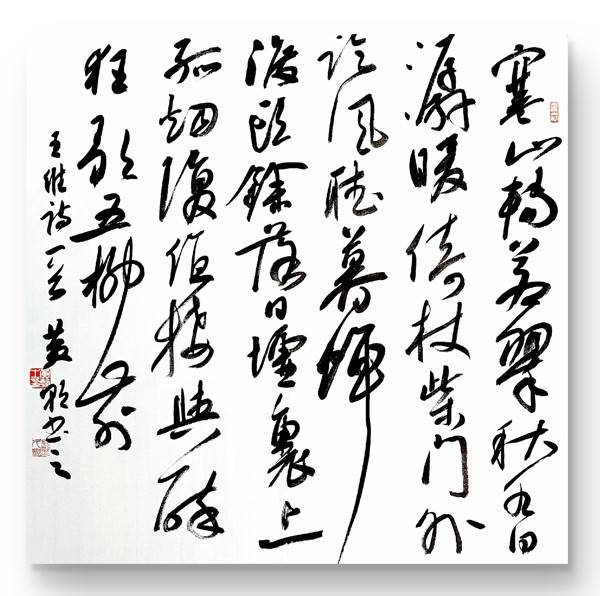 寒山轉蒼翠秋水日
潺湲倚杖柴门外
临风聽暮蟬
渡頭餘落日墟裏上
孤烟復值接輿醉
狂歌五柳前
王維詩一首 黄